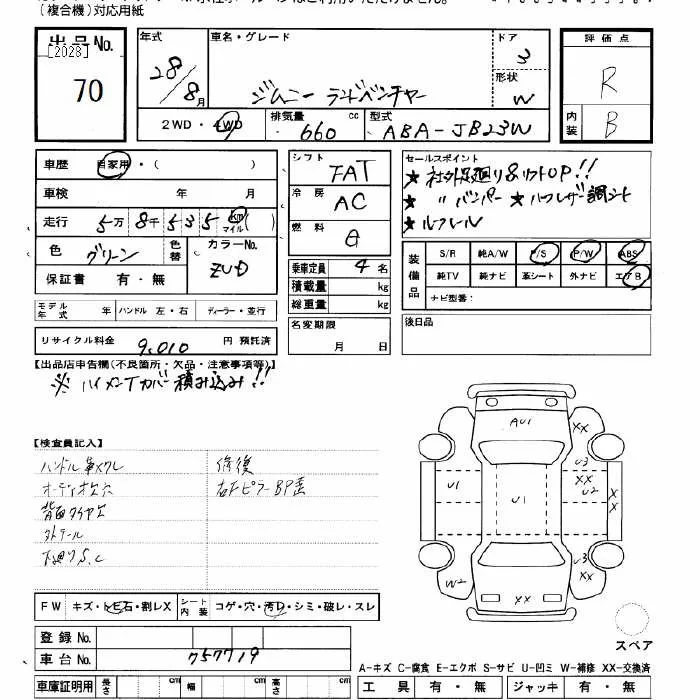 (複合機)対応用紙
出品No.
[2028]
70
年式
28/8月
車名・グレード
ジムニー ランドベンチャー
ドア
3
形状
W
評価点
R
内装
B
2WD・4WD
排気量
660 cc
型式
ABA-JB23W
車歴 自家用・( )
車検 年 月
走行 5万8千535 km マイル ( )
色 グリーン 色替
カラーNo.
ZUD
保証書 有・無
モデル年式 年 ハンドル 左・右 ディーラー・並行
リサイクル料金 9,010 円 預託済
シフト FAT
冷房 AC
燃料 G
乗車定員 4 名
積載量 kg
総重量 kg
名変期限
月 日
セールスポイント
★社外足廻り&リフトUP!!
★ 〃 バンパー ★ハーフレザー調シート
★ルーフレール
装備品
S/R 純A/W P/S P/W ABS
純TV 純ナビ 革シート 外ナビ エアB
ナビ型番:
後日品
【出品店申告欄(不良箇所・欠品・注意事項等)】
※ 積み込み!!
【検査員記入】
ハンドル革スレ
オーディオ欠穴
背面タイヤ欠
下廻りS.C
修復
右Fピラー BP歪
AU1
XX
U3
XX
U2
U1
U1
XX
U3
XX
W2
XX
FW キズ・ヒビ石・割レX
シート内装 コゲ・穴・汚D・シミ・破レ・スレ
登録No.
車台No. 757719
車庫証明用 長さ cm 幅 cm 高さ cm
スペア
A-キズ C-腐食 E-エクボ S-サビ U-凹ミ W-補修 XX-交換済
工具 有・無 ジャッキ 有・無